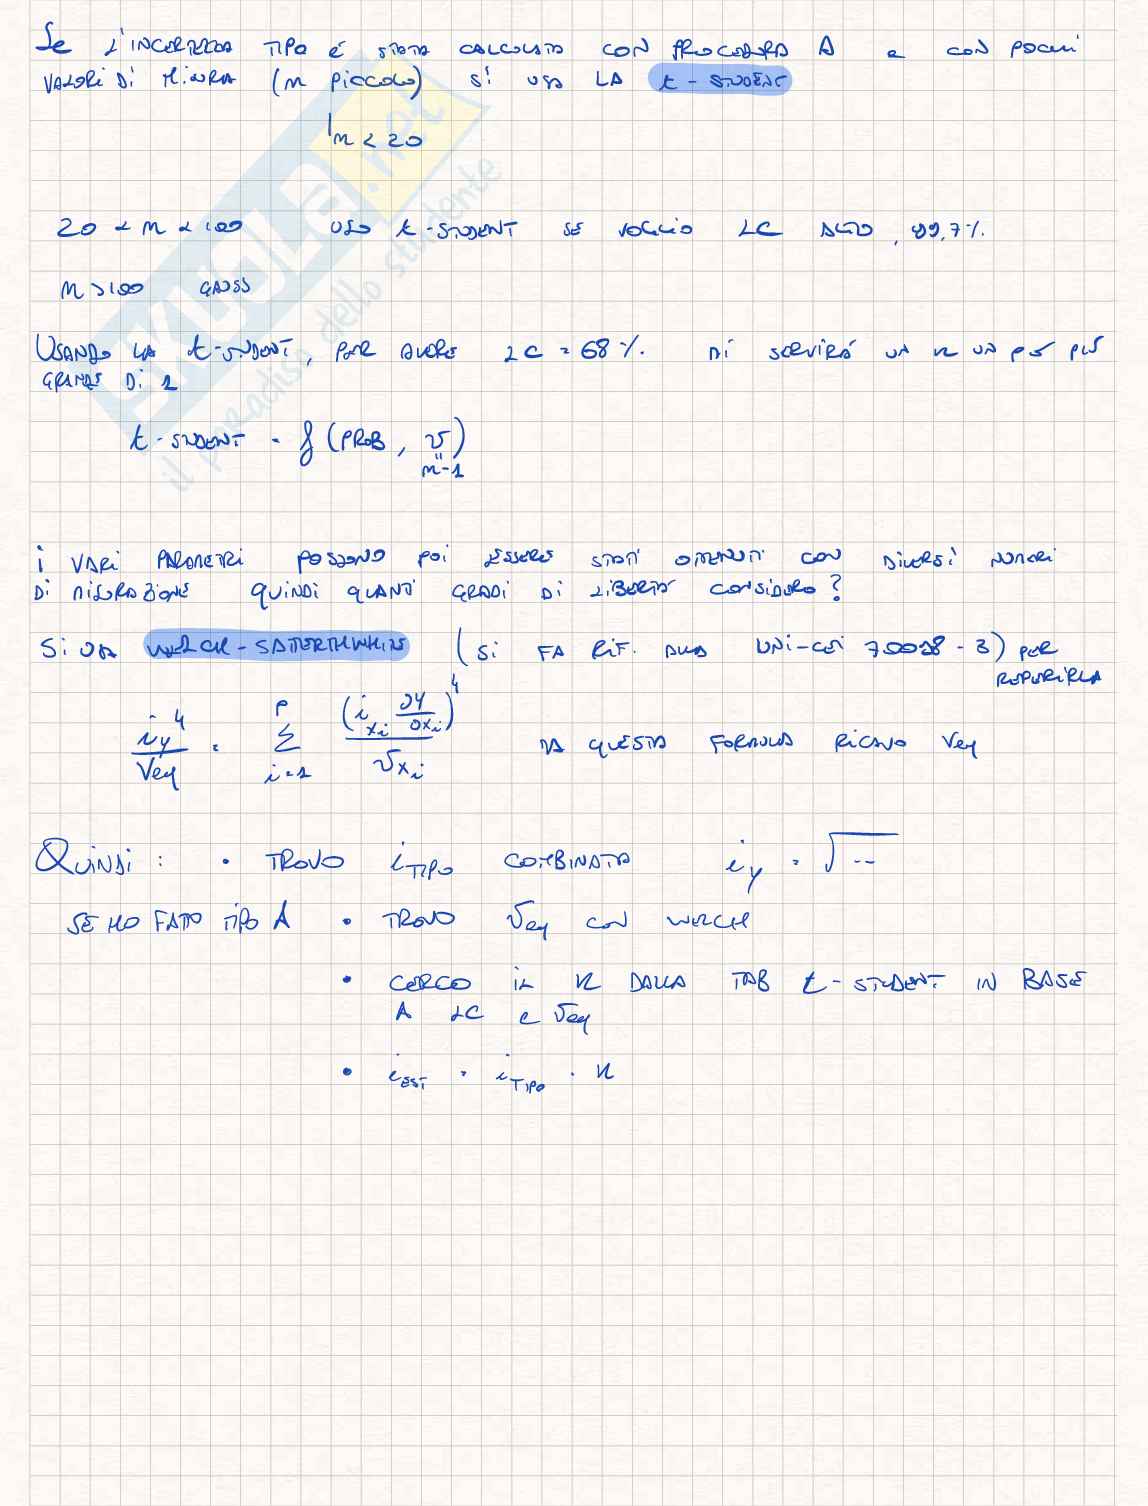 Se L'INCERTEZZA TIPO é STATA CALCOLATA CON PROCEDURA A e CON POCHI
VALORI Di MISURA (m Piccolo) Si USA LA t-STUDENT
m < 20
20 < m < 100 USO t-STUDENT SE VOGLIO LC ALTO, 99,7%.
m > 100 GAUSS
USANDO LA t-STUDENT, PER AVERE LC = 68%. Mi SERVIRÁ UN K UN PO' PIÙ
GRANDE Di 1
t-STUDENT = f (PROB, ν)
m-1
i VARI PARAMETRI POSSONO POI ESSERE STATI OTTENUTI CON DIVERSI NUMERI
Di MISURAZIONE QUINDI QUANTI GRADI Di LIBERTÀ CONSIDERO?
Si USA WELCH-SATTERTHWHITE (Si FA RIF. ALLA UNI-CEI 70098-3) PER
REPERIRLA
i_y^4 / ν_eq = Σ_{i=1}^{P} (i_{x_i} ∂y/∂x_i)^4 / ν_{x_i} DA QUESTA FORMULA RICAVO ν_eq
QUINDI: • TROVO i_TIPO COMBINATA i_y = √--
SE HO FATTO TIPO A • TROVO ν_eq CON WELCH
• CERCO IL K DALLA TAB t-STUDENT IN BASE
A LC e ν_eq
• i_EST = i_TIPO · K
SKUOLA.net
il paradiso dello studente